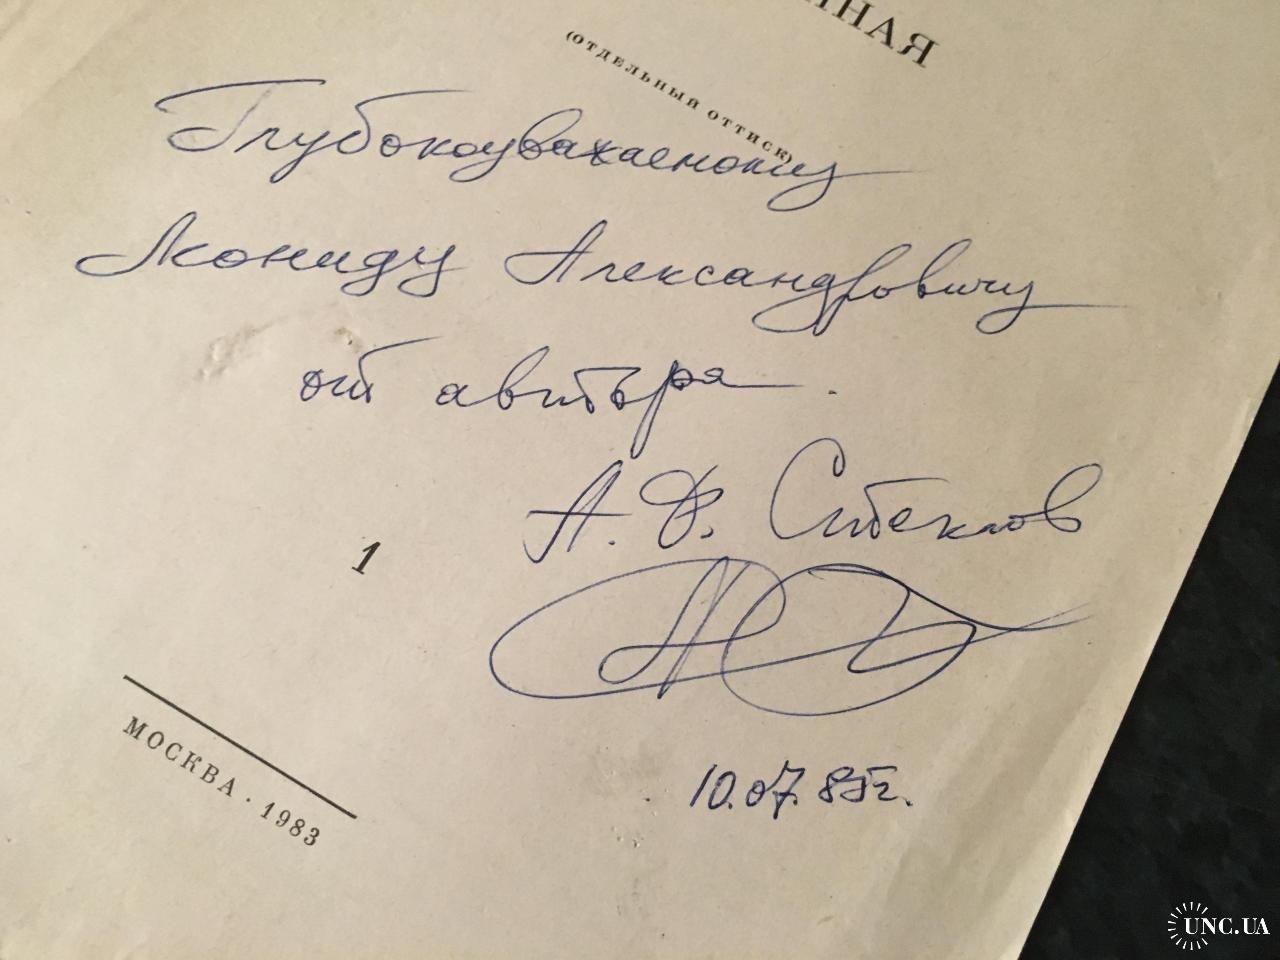 (ОТДЕЛЬНЫЙ ОТТИСК)
Глубокоуважаемому
Леониду Александровичу
от автора.
А. Д. Стеклов
1
10.07.85г.
МОСКВА · 1983
UNC.UA